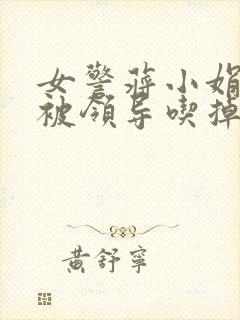 女警蒋小娟
被领导喫掉
黃舒寧